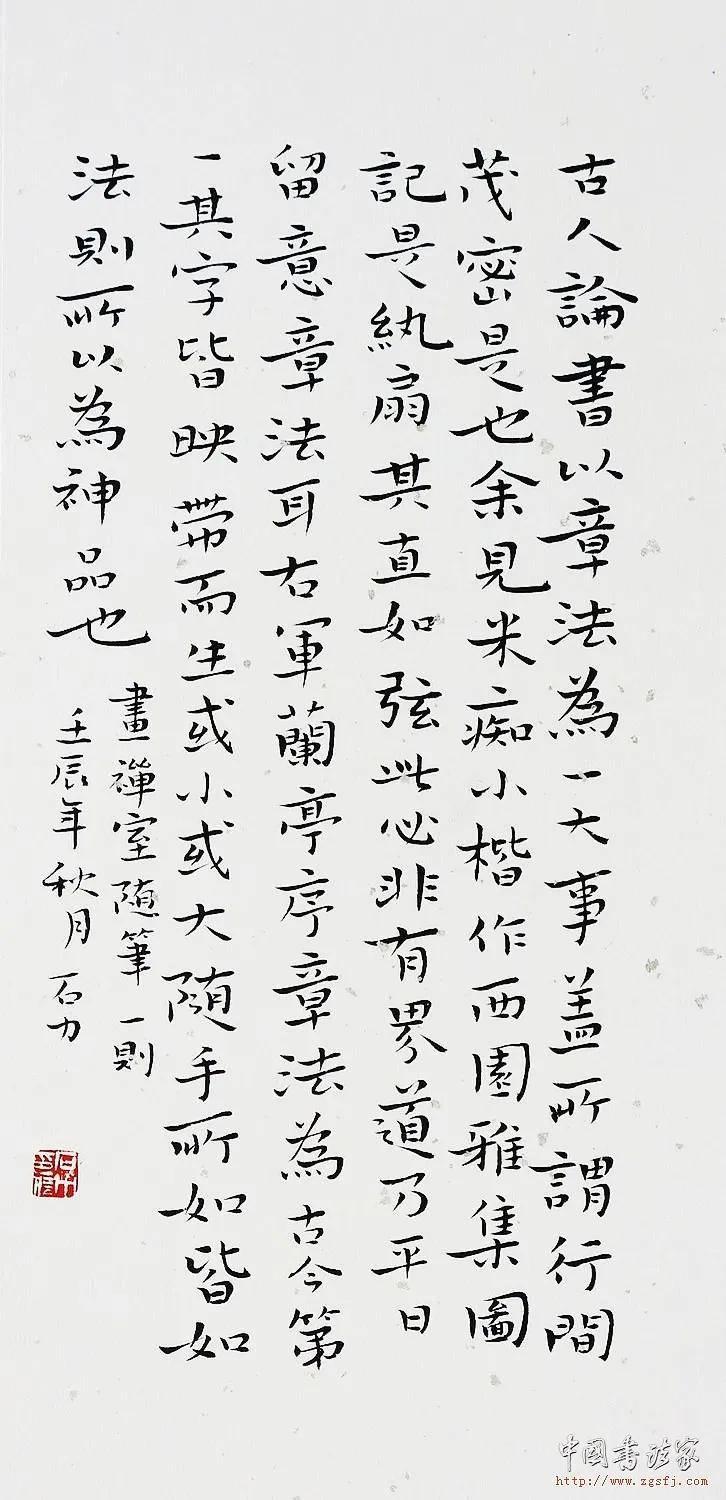 古人論書以章法為一大事蓋所謂行間
茂密是也余見米痴小楷作西園雅集圖
記是紈扇其直如弦此必非有界道乃平日
留意章法耳右軍蘭亭序章法為古今第
一其字皆映帶而生或小或大隨手所如皆如
法則所以為神品也
畫禪室随筆一則
壬辰年秋月石力
中国书法家
http://www.zgsfj.com